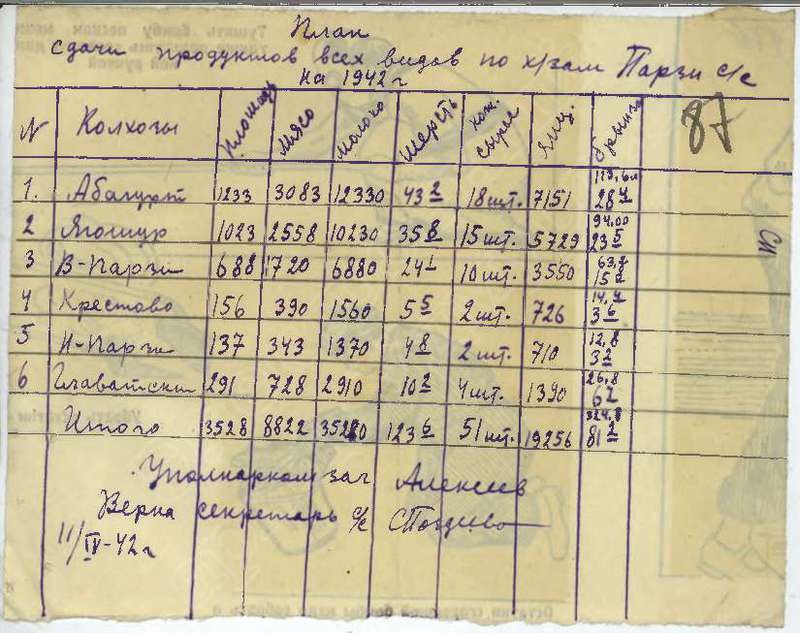 План
сдачи продуктов всех видов по х/зам Парзи с/с
на 1942 г
87
№ Колхозы площадь мясо молоко шерсть кож. сырье яиц. брынза
1. Абагурт 1233 3083 12330 43 2 18 шт. 7151 113,6 28 4
2 Ягошур 1023 2558 10230 35 8 15 шт. 5729 94,00 23 5
3 В-Парзи 688 1720 6880 24 1 10 шт. 3550 63,2 15 8
4 Крестово 156 390 1560 5 5 2 шт. 726 14,4 3 6
5 Н-Парзи 137 343 1370 4 8 2 шт. 710 12,8 3 2
6 Главатски 291 728 2910 10 2 4 шт. 1390 26,8 6 7
Итого 3528 8822 35280 123 6 51 шт. 19256 324,8 81 2
Уполнаркомзаг Алексеев
Верна секретарь с/с
11/IV-42 г